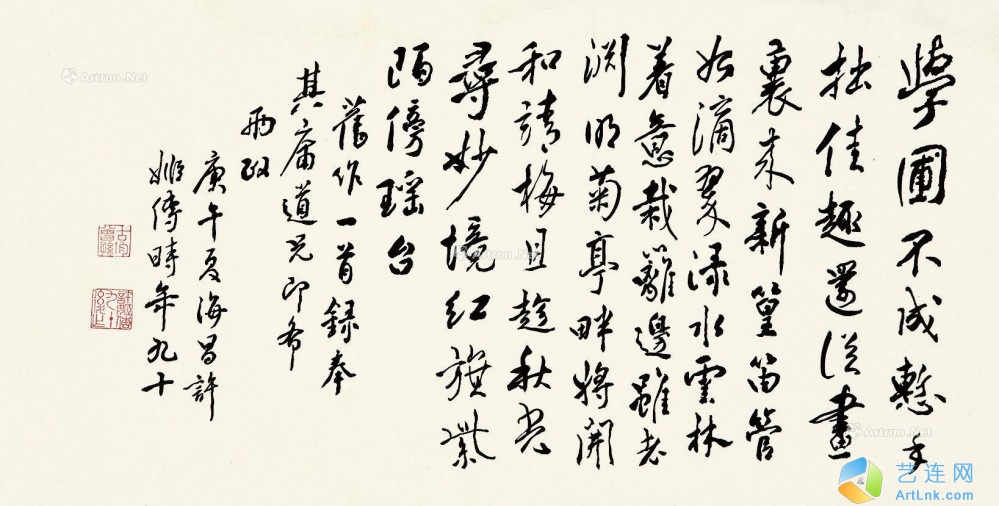 學圃不成慙手
拙佳趣還從畫
裏来新篁笛管
如滴翠渌水雲林
着意栽籬邊雖老
渊明菊亭畔将開
和靖梅且趁秋光
尋妙境红旗紫
陌傍瑶台
舊作一首録奉
其庸道兄即希
政
庚午夏海昌許
姬傳時年九十
Artron.Net
Artron.Net
Artron.Net
艺连网
ArtLnk.com